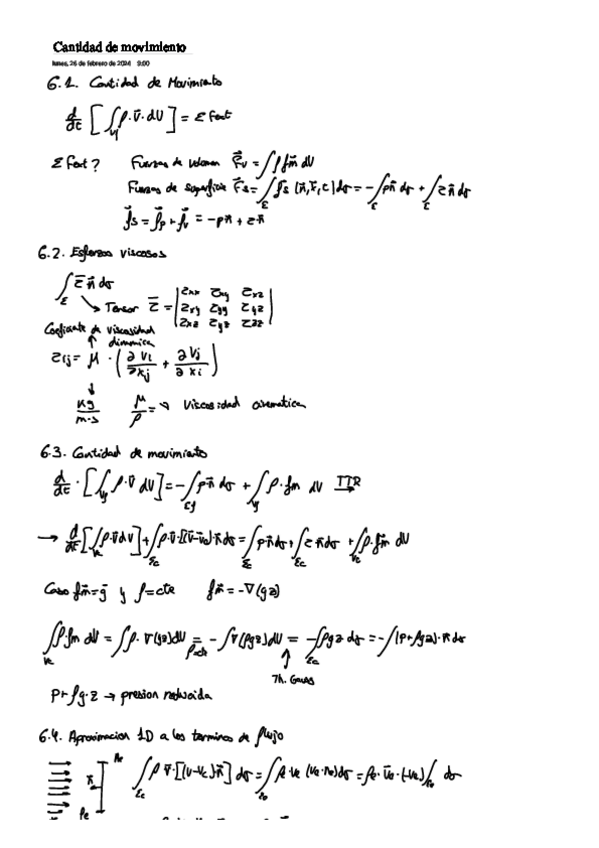 Cantidad de movimiento
lunes, 26 de febrero de 2024 9:00
6.1. Cantidad de Movimiento
d/dt [∫_Vf ρ·v̄·dV] = Σ Fext
Σ Fext? Fuerzas de volumen F⃗v = ∫ρf⃗m dV
Fuerzas de superficie F⃗s = ∫_Σ f⃗s (n⃗, r⃗, t) dσ = -∫_Σ pn⃗ dσ + ∫_Σ τn⃗ dσ
f⃗s = f⃗p + f⃗v = -pn⃗ + τn⃗
6.2. Esfuerzos viscosos
∫_Σ τ̄ n⃗ dσ
↘ Tensor τ̄ = | τxx τxy τxz |
| τxy τyy τyz |
| τxz τyz τzz |
Coeficiente de viscosidad
↑ dinamica
τij = μ · (∂Vi/∂xj + ∂Vj/∂xi)
↓
kg/m·s μ/ρ = ν → viscosidad cinematica
6.3. Cantidad de movimiento
d/dt · [∫_Vf ρ·v̄ dV] = -∫_Σf pn⃗ dσ + ∫_Vf ρ·fm dV TTR
→ d/dt [∫_Vc ρ·v̄ dV] + ∫_Σc ρ·v̄·[(v̄-v̄c)·n̄] dσ = ∫_Σc pn̄ dσ + ∫_Σc τ·n̄ dσ + ∫_Vc ρ·f⃗m dV
Caso f⃗m = g⃗ y ρ = cte f⃗m = -∇(gz)
∫_Vc ρ·fm dV = ∫ρ·∇(gz)dV =_ρ=cte -∫∇(ρgz)dV = -∫_Σc ρgz dσ = -∫(p+ρgz)·n̄ dσ
↑
Th. Gauss
p+ρg·z → presion reducida
6.4. Aproximacion 1D a los terminos de flujo
∫_Σc ρ v̄·[(v-vc)·n̄] dσ